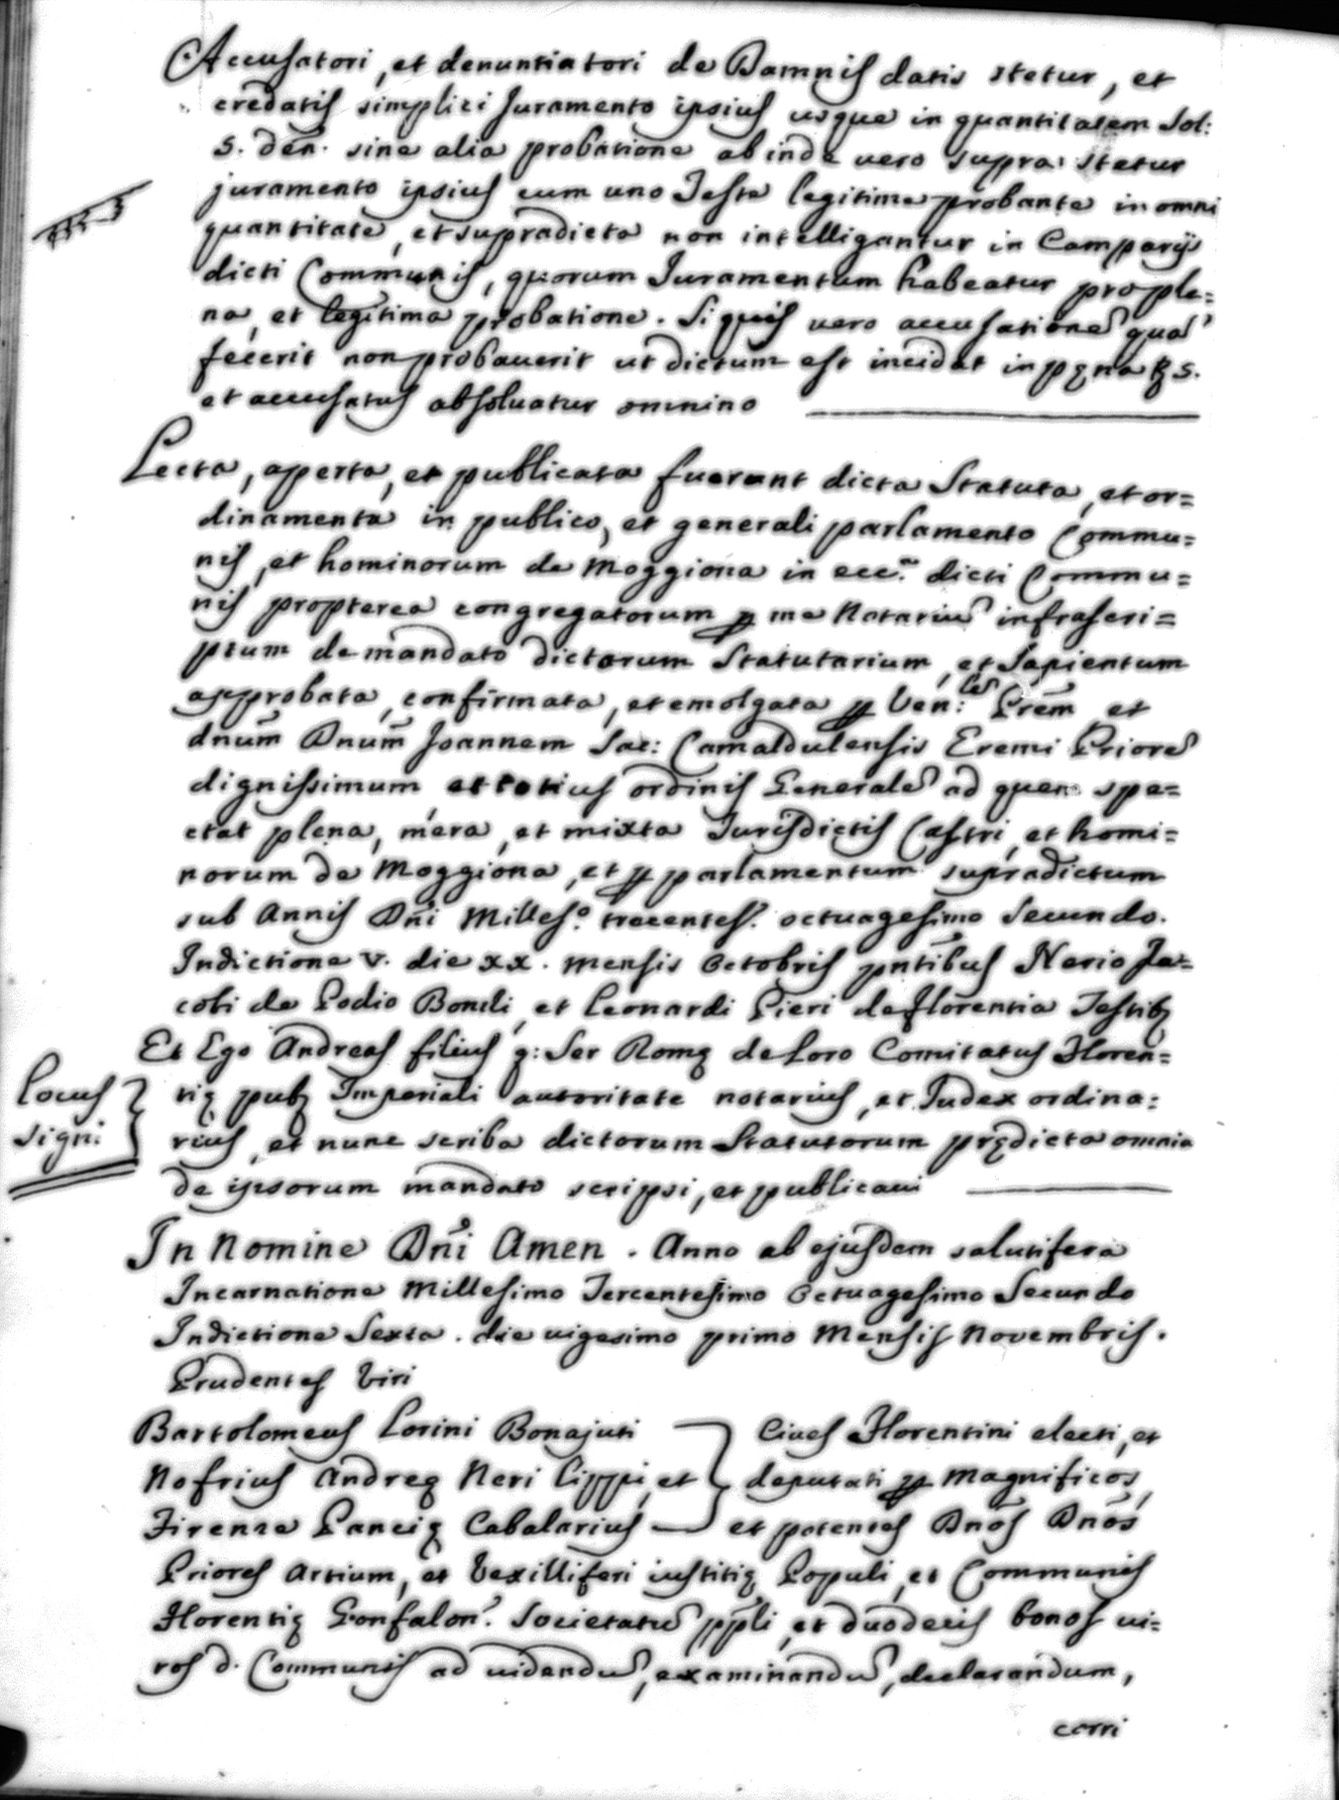 Accusatori, et denuntiatori de Damnis datis stetur, et
credatis simplici Juramento ipsius usque in quantitatem Sol:
5. den. sine alia probatione ab inde vero supra stetur
juramento ipsius cum uno Teste legitime probante in omni
quantitate, et supradicta non intelligantur in Camparijs
dicti Communis, quorum Juramentum habeatur pro ple=
na, et legitima probatione. Si quis vero accusatione qua
fecerit non probauerit ut dictum est incidat in pęna ꝶ s.
et accusatus absoluatur omnino
Lecta, aperta, et publicata fuerunt dicta Statuta, et or=
dinamenta in publico, et generali parlamento Commu=
nis, et hominorum de Moggiona in ecc.a dicti Commu=
nis propterea congregatorum ꝑ me Notariu infrascri=
ptum de mandato dictorum Statutarium, et Sapientum
approbata, confirmata, et emolgata ꝑ Ven:lem Prem et
dnum Dnum Joannem Sac: Camaldulensis Eremi Priore
dignissimum et totius ordinis Generale ad quem spe=
ctat plena, mera, et mixta Jurisdictis Castri, et homi=
norum de Moggiona, et ꝑ parlamentum supradictum
sub Annis Dni Milles.o trecentes. octuagesimo Secundo.
Indictione V. die XX. mensis Octobris pntibus Nerio Ja=
cobi de Podio Bondi, et Leonardi Pieri de Florentia Testibꝫ
Et Ego Andreas filius q: Ser Romę de Loro Comitatus Floren=
Locus
signi
tię pubꝫ Imperiali autoritate notarius, et Judex ordina=
rius, et nunc scriba dictorum Statutorum prędicta omnia
de ipsorum mandato scripsi, et publicaui
In Nomine Dni Amen. Anno ab ejusdem salutifera
Incarnatione Millesimo Tercentesimo Octuagesimo Secundo
Indictione Sexta. die uigesimo primo Mensis Novembris.
Prudentes Viri
Bartolomeus Lorini Bonajuti } Ciues Florentini electi, et
Nofrius Andreę Neri Lippi, et } deputati ꝑ Magnificos,
Firenze Pancię Cabalarius } et potentes Dnos Dnos
Priores Artium, et Vexilliferi iustitię Populi, et Communis
Florentię Gonfalon. Societatu ppli, et duodecis bonos ui=
ros d. Communis ad uidendu, examinandu, declarandum,
corri